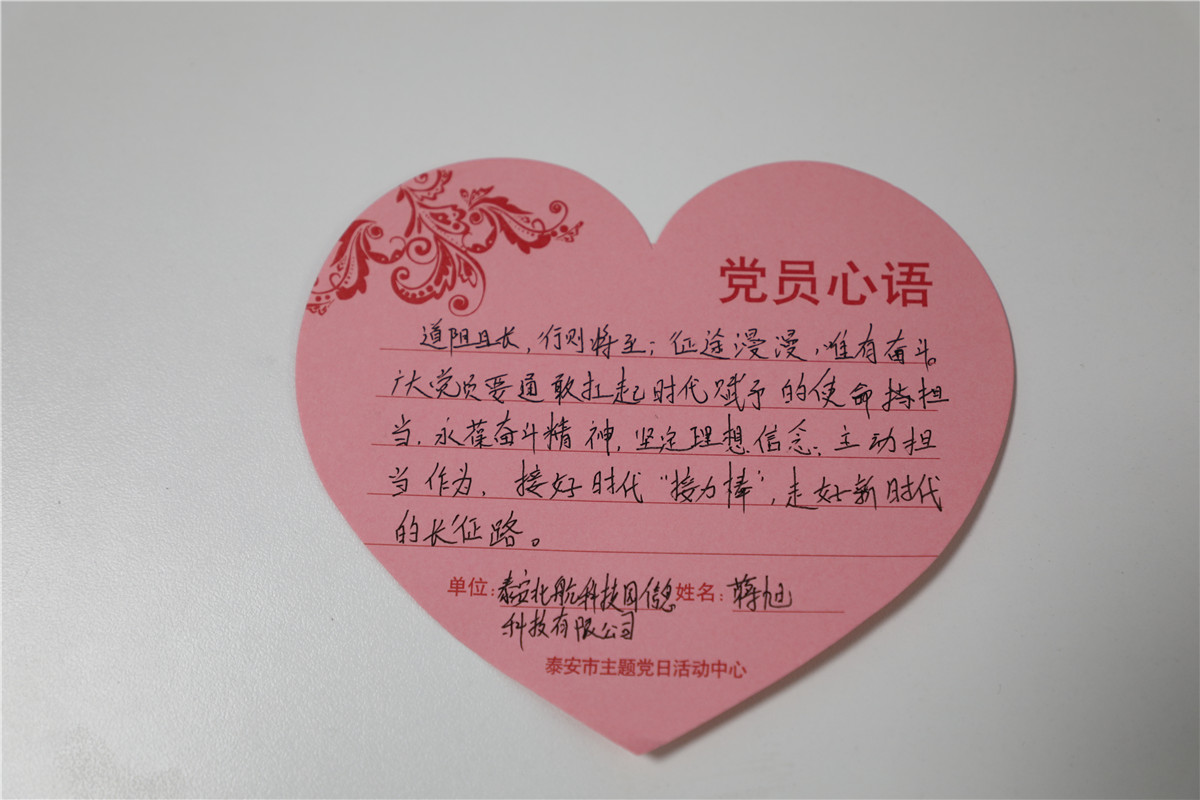 党员心语
道阻且长，行则将至；征途漫漫，唯有奋斗。
广大党员要通敢扛起时代赋予的使命担
当，永葆奋斗精神，坚定理想信念；主动担
当作为，接好时代“接力棒”，走好新时代
的长征路。
单位：泰安北航科技园信息 姓名：蒋旭
科技有限公司
泰安市主题党日活动中心